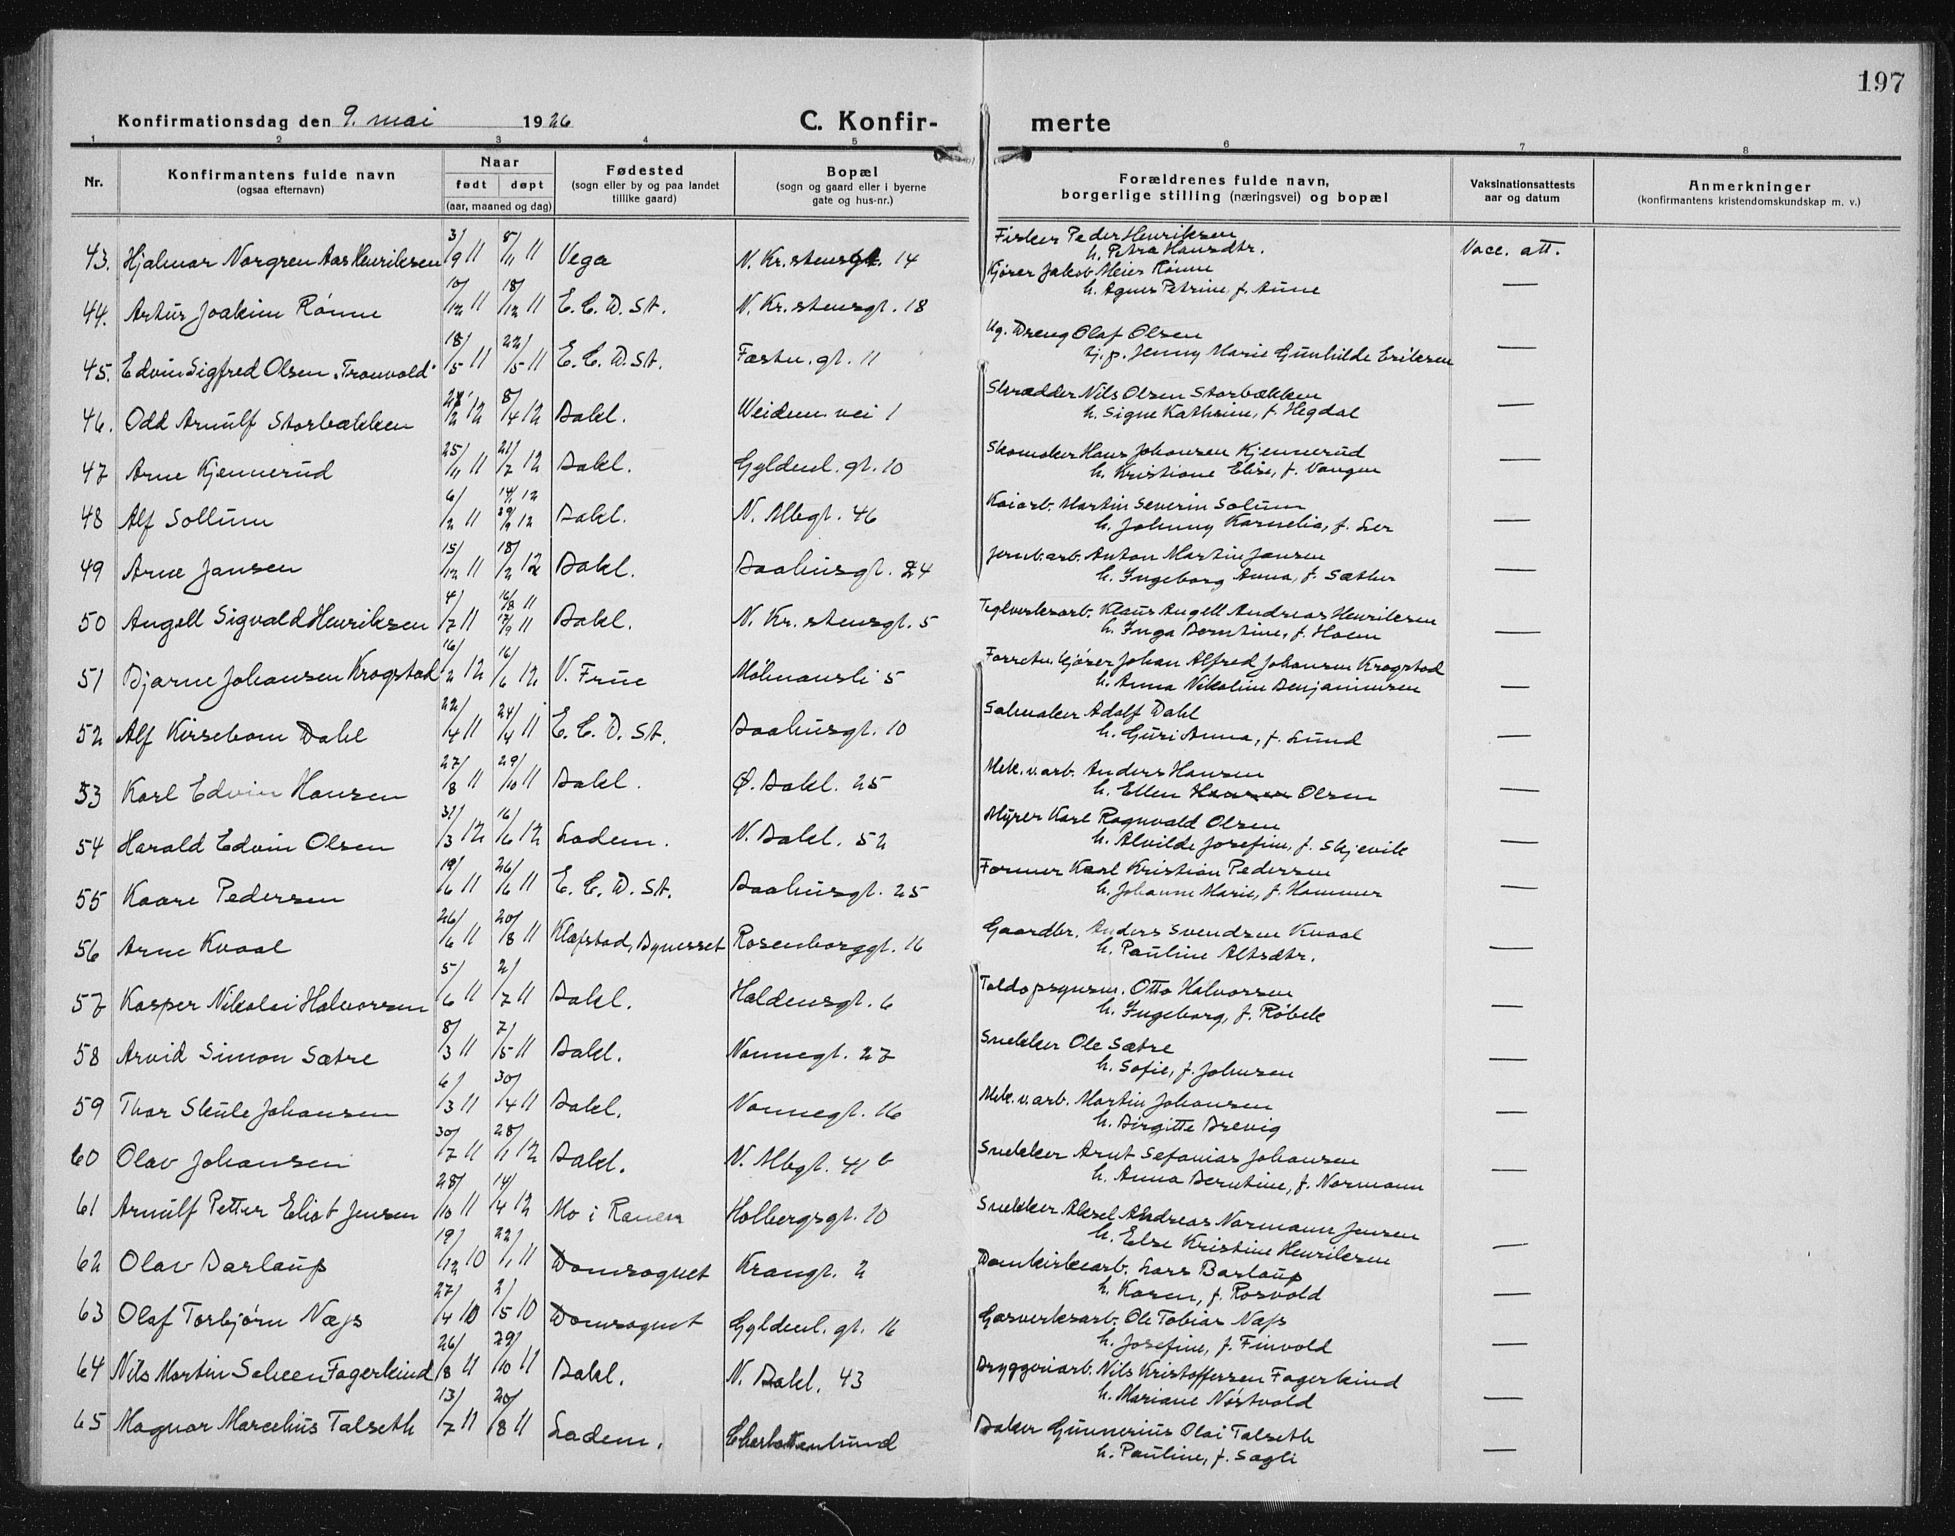 197
Konfirmationsdag den 9. mai 1926 C. Konfir- merte
1 2 3 4 5 6 7 8
Nr. Konfirmantens fulde navn (ogsaa efternavn) Naar født døpt (aar, maaned og dag) Fødested (sogn eller by og paa landet tillike gaard) Bopæl (sogn og gaard eller i byerne gate og hus-nr.) Forældrenes fulde navn, borgerlige stilling (næringsvei) og bopæl Vaksinationsattests aar og datum Anmerkninger (konfirmantens kristendomskundskap m. v.)
43. Hjalmar Norgren Aas Henriksen 3/9 11 5/11 11 Vega N. Kr.stensgt. 14 Fisker Peder Henriksen
h. Petra Hansdtr. Vacc. att.
44. Artur Joakim Rønne 10/12 11 18/12 11 E. C. D. St. N. Kr.stensgt. 18 Kjører Jakob Meier Rønne
h. Agnes Petrine, f. Aune —
45. Edvin Sigfred Olsen „Tronvold" 18/5 11 22/5 11 E. C. D. St. Fæstn. gt. 11 Ug. Dreng Olaf Olsen
Tj. p. Jenny Marie Gunhilde Eriksen —
46. Odd Arnulf Storbækken 27/2 12 8/4 12 Bakl. Weidem. vei 1 Skrædder Nils Olsen Storbækken
h. Signe Kathrine, f. Hegdal —
47 Arne Kjennerud 25/11 11 21/7 12 Bakl. Gyldenl. gt. 10 Skomaker Hans Johansen Kjennerud
h. Kristiane Elise, f. Vangen —
48 Alf Sollum 6/2 11 14/1 12 29/9 12 Bakl. N. Mbgt. 46 Kaiarb. Martin Severin Solum
h. Johnny Kornelia, f. Ler —
49 Arne Jansen 15/12 11 18/2 12 Bakl. Baahusgt. 24 Jernb.arb. Anton Martin Jansen
h. Ingeborg Anna, f. Sæther —
50 Angell Sigvald Henriksen 4/7 11 16/8 11 17/9 11 Bakl. N. Kr.stensgt. 5 Teglverksarb. Klaus Angell Andreas Henriksen
h. Inga Berntine, f. Hoem —
51 Bjarne Johansen Krogstad 16/2 12 16/6 12 V. Frue Møhnansli 5 Forretn. kjører Johan Alfred Johansen Krogstad
h. Anna Nikoline Benjaminsen —
52 Alf Kirsebom Dahl 22/4 11 24/4 11 E. C. D. St. Baahusgt. 10 Salmaker Adolf Dahl
h. Guri Anna, f. Lund —
53 Karl Edvin Hansen 27/8 11 29/10 11 Bakl. Ø. Bakl. 25 Mek. v. arb. Anders Hansen
h. Ellen Hansen Olsen —
54 Harald Edvin Olsen 31/3 12 16/6 12 Ladem. N. Bakl. 52 Myrer Karl Ragnvald Olsen
h. Alvilde Josefine, f. Skjevik —
55 Kaare Pedersen 19/6 11 26/6 11 E. C. D. St. Baahusgt. 25 Former Karl Kristian Pedersen
h. Johanne Marie, f. Hammer —
56 Arne Kvaal 26/6 11 20/8 11 Klefstad, Bynesset Rosenborggt. 16 Gaardbr. Anders Svendsen Kvaal
h. Pauline Altsdtr. —
57 Kasper Nikolai Halvorsen 5/6 11 2/7 11 Bakl. Haldensgt. 6 Toldopsynsm. Otto Halvorsen
h. Ingeborg, f. Røbek
58 Arvid Simon Sætre 8/3 11 7/5 11 Bakl. Nonnegt. 27 Snekker Ole Sætre
h. Sofie, f. Johnsen —
59 Thor Skule Johansen 6/3 11 30/4 11 Bakl. Nonnegt. 16 Mek. v. arb. Martin Johansen
h. Birgitte Brevig —
60 Olav Johansen 30/7 11 28/1 12 Bakl. N. Mbgt. 41 b Snekker Arnt Sefanias Johansen
h. Anna Berntine, f. Normann —
61 Arnulf Petter Eliot Jensen 28/10 11 14/4 12 Mo i Ranen Holbergsgt. 10 Snekker Aksel Andreas Normann Jensen
h. Else Kristine Henriksen —
62 Olav Barlaup 19/12 10 22/1 11 Domsognet Krangt. 2 Domkirkearb. Lars Barlaup
h. Karen, f. Rosvold —
63 Olaf Torbjørn Næss 27/4 10 2/5 10 Domsognet Gyldenl. gt. 16 Gasverksarb. Ole Tobias Næss
h. Josefine, f. Finvold —
64 Nils Martin Scheen Fagerkind 26/8 11 29/10 11 Bakl. N. Bakl. 43 Bryggeriarb. Nils Kristoffersen Fagerkind
h. Mariane Nøstvold —
65 Magnar Marcelius Talseth 13/7 11 20/8 11 Ladem. Charlottenlund Baker Gunnerius Olai Talseth
h. Pauline, f. Sagli —